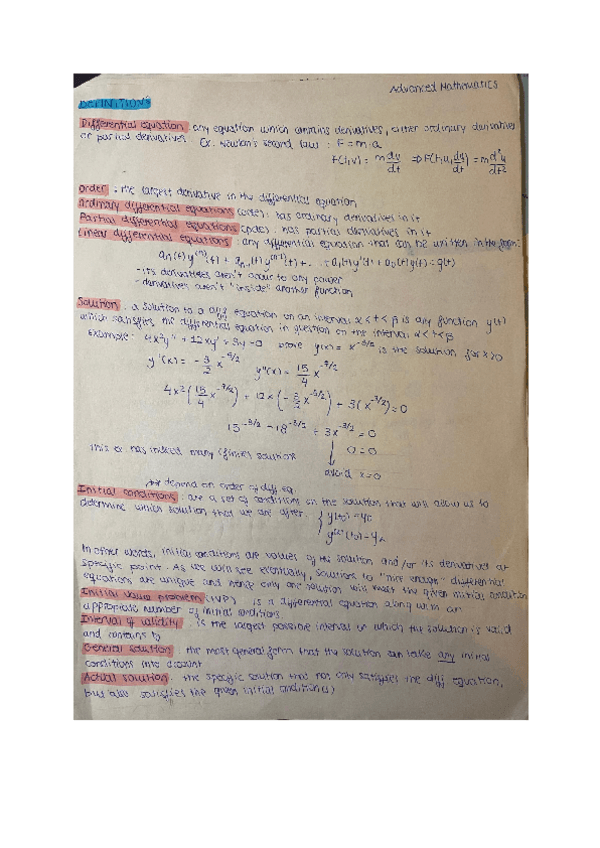 Advanced Mathematics
DEFINITIONS
Differential equation : any equation which contains derivatives, either ordinary derivatives
or partial derivatives. Ex. Newton's second law : F = m·a
F(t,v) = m dv/dt ⇒ F(t,u,du/dt) = m d²u/dt²
Order : the largest derivative in the differential equation
Ordinary differential equations (ode) : has ordinary derivatives in it
Partial differential equations (pde) : has partial derivatives in it
Linear differential equations : any differential equation that can be written in the form:
aₙ(t)y⁽ⁿ⁾(t) + aₙ₋₁(t)y⁽ⁿ⁻¹⁾(t) + ... + a₁(t)y'(t) + a₀(t)y(t) = g(t)
- its derivatives aren't occur to any power
- derivatives aren't "inside" another function
Solution : a solution to a any equation on an interval α < t < β is any function y(t)
which satisfies the differential equation in question on the interval α < t < β
Example : 4x²y'' + 12xy' + 3y = 0 prove y(x) = x^-3/2 is the solution for x > 0
y'(x) = -3/2 x^-5/2
y''(x) = 15/4 x^-7/2
4x²(15/4 x^-7/2) + 12x(-3/2 x^-5/2) + 3(x^-3/2) = 0
15^-3/2 - 18^-3/2 + 3x^-3/2 = 0
this ex. has indeed many solutions
0 = 0
avoid x = 0
depend on order of diff eq.
Initial conditions : are a set of conditions on the solution that will allow us to
determine which solution that we are after.
y(t₀) = y₀
In other words, initial conditions are values of the solution and/or its derivatives at
specific point. As we will see eventually, solutions to "nice enough" differential
equations are unique and hence only one solution will meet the given initial condition
Initial value problem (IVP) is a differential equation along with an
appropriate number of initial conditions
Interval of validity is the largest possible interval on which the solution is valid
and contains t₀
General solution : the most general form that the solution can take any initial
conditions into account
Actual solution : the specific solution that not only satisfies the diff equation,
but also satisfies the given initial condition(s)